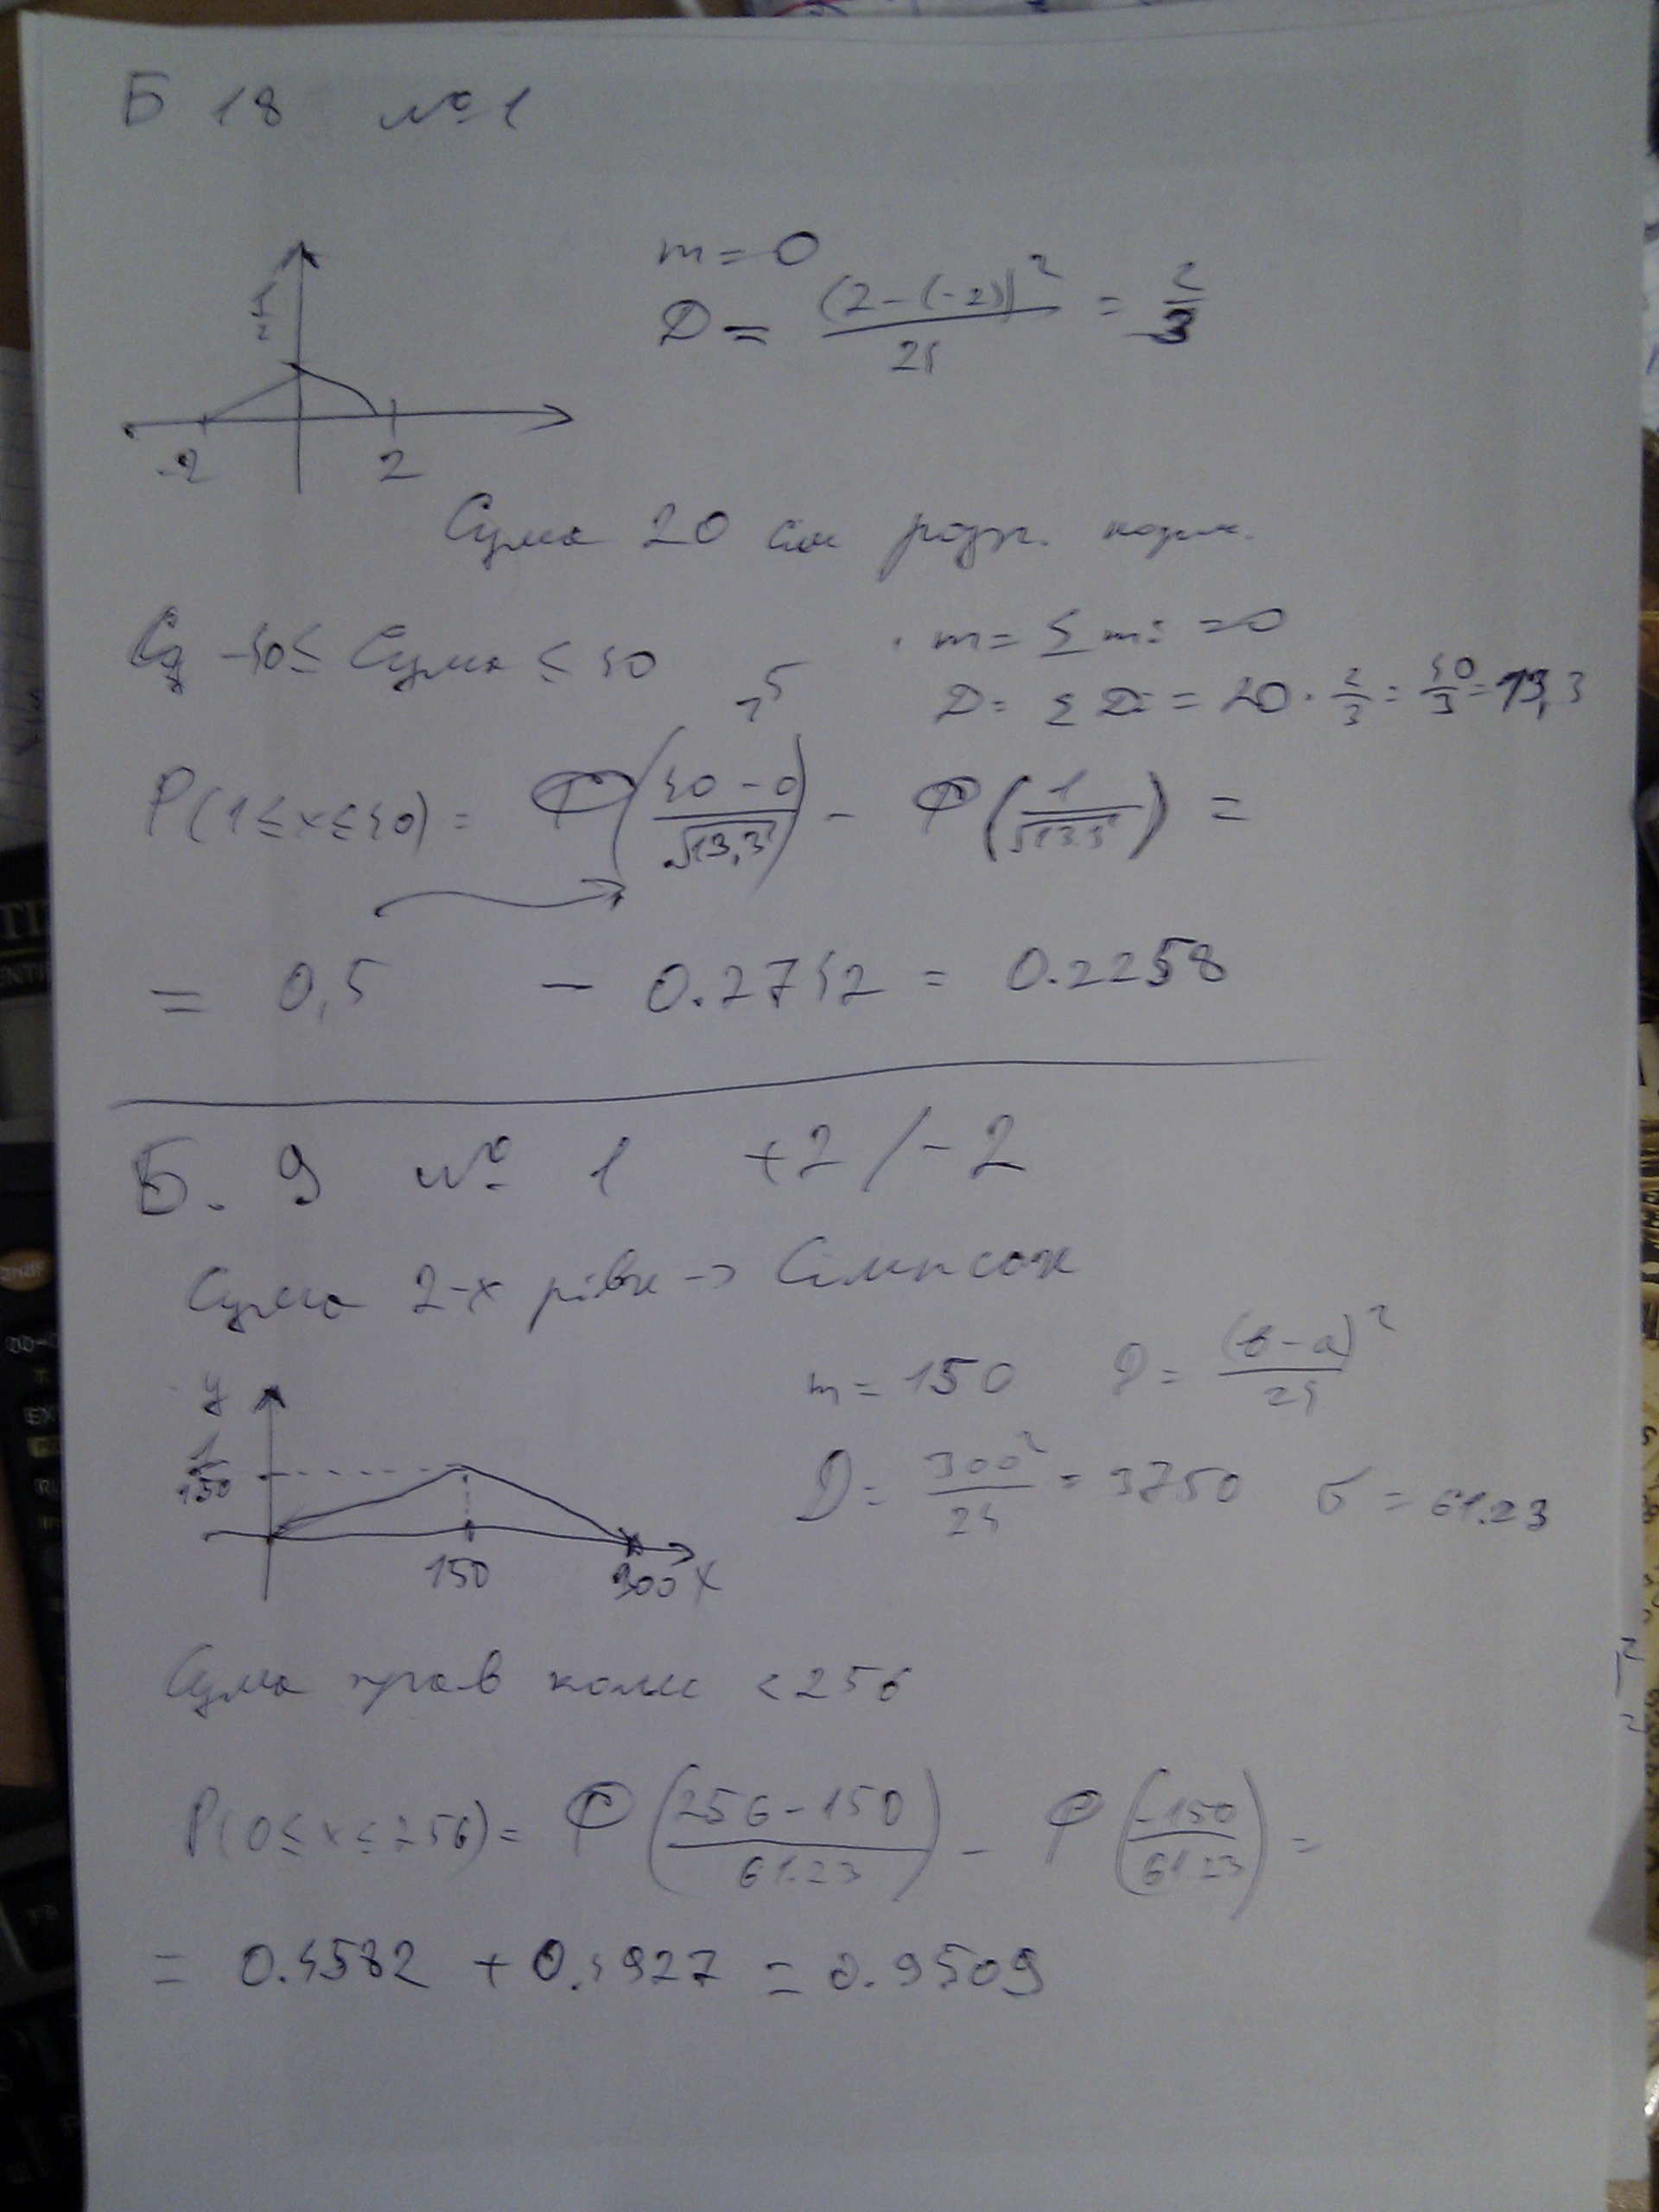 Б 18 № 1
1/2
-2 2
m = 0
D = (2-(-2))² / 24 = 2/3
Сума 20 сім розп. норм.
-40 ≤ Сума ≤ 40
m = Σ mi = 0
D = Σ Di = 20 · 2/3 = 40/3 = 13,3
>5
P(1≤x≤40) = Ф((40-0)/√13,3) - Ф(1/√13.3) =
= 0,5 - 0.2742 = 0.2258
Б. 9 № 1 +2/-2
Сума 2-х рівн -> Сімпсон
y
1/150
150 300 x
m = 150 D = (b-a)²/24
D = 300²/24 = 3750 σ = 61.23
Сума прав колес < 256
P(0≤x≤256) = Ф((256-150)/61.23) - Ф(-150/61.23) =
= 0.4582 + 0.4927 = 0.9509